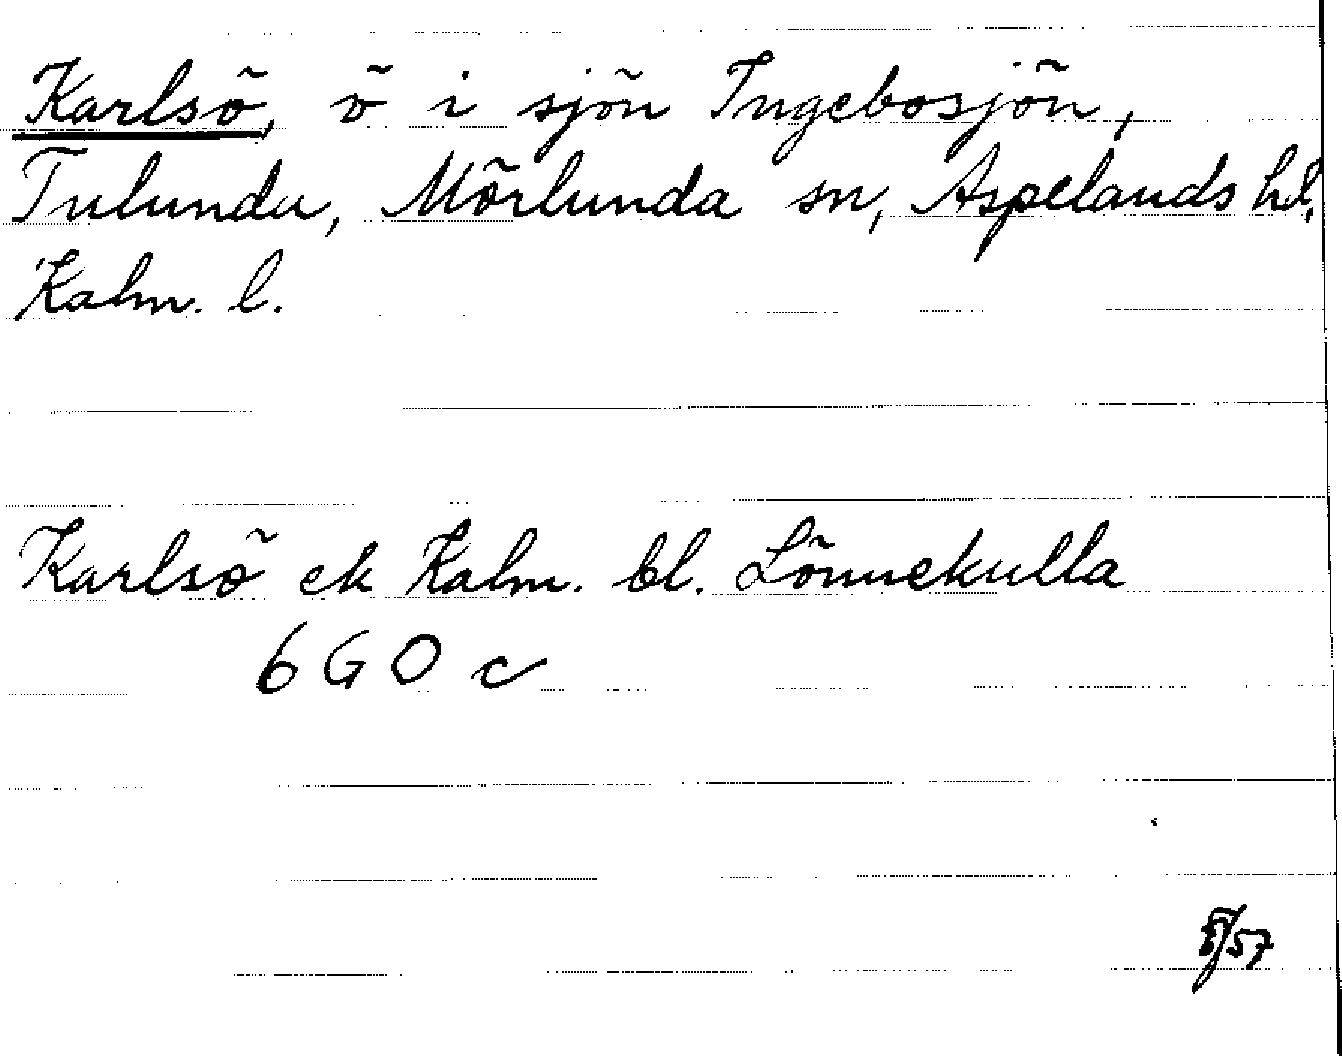 Karlsö, ö i sjön Ingebosjön,
Tulunda, Mörlunda sn, Aspelands hd,
Kalm. l.
Karlsö ek Kalm. bl. Lönnekulla
6 G 0 c
/57